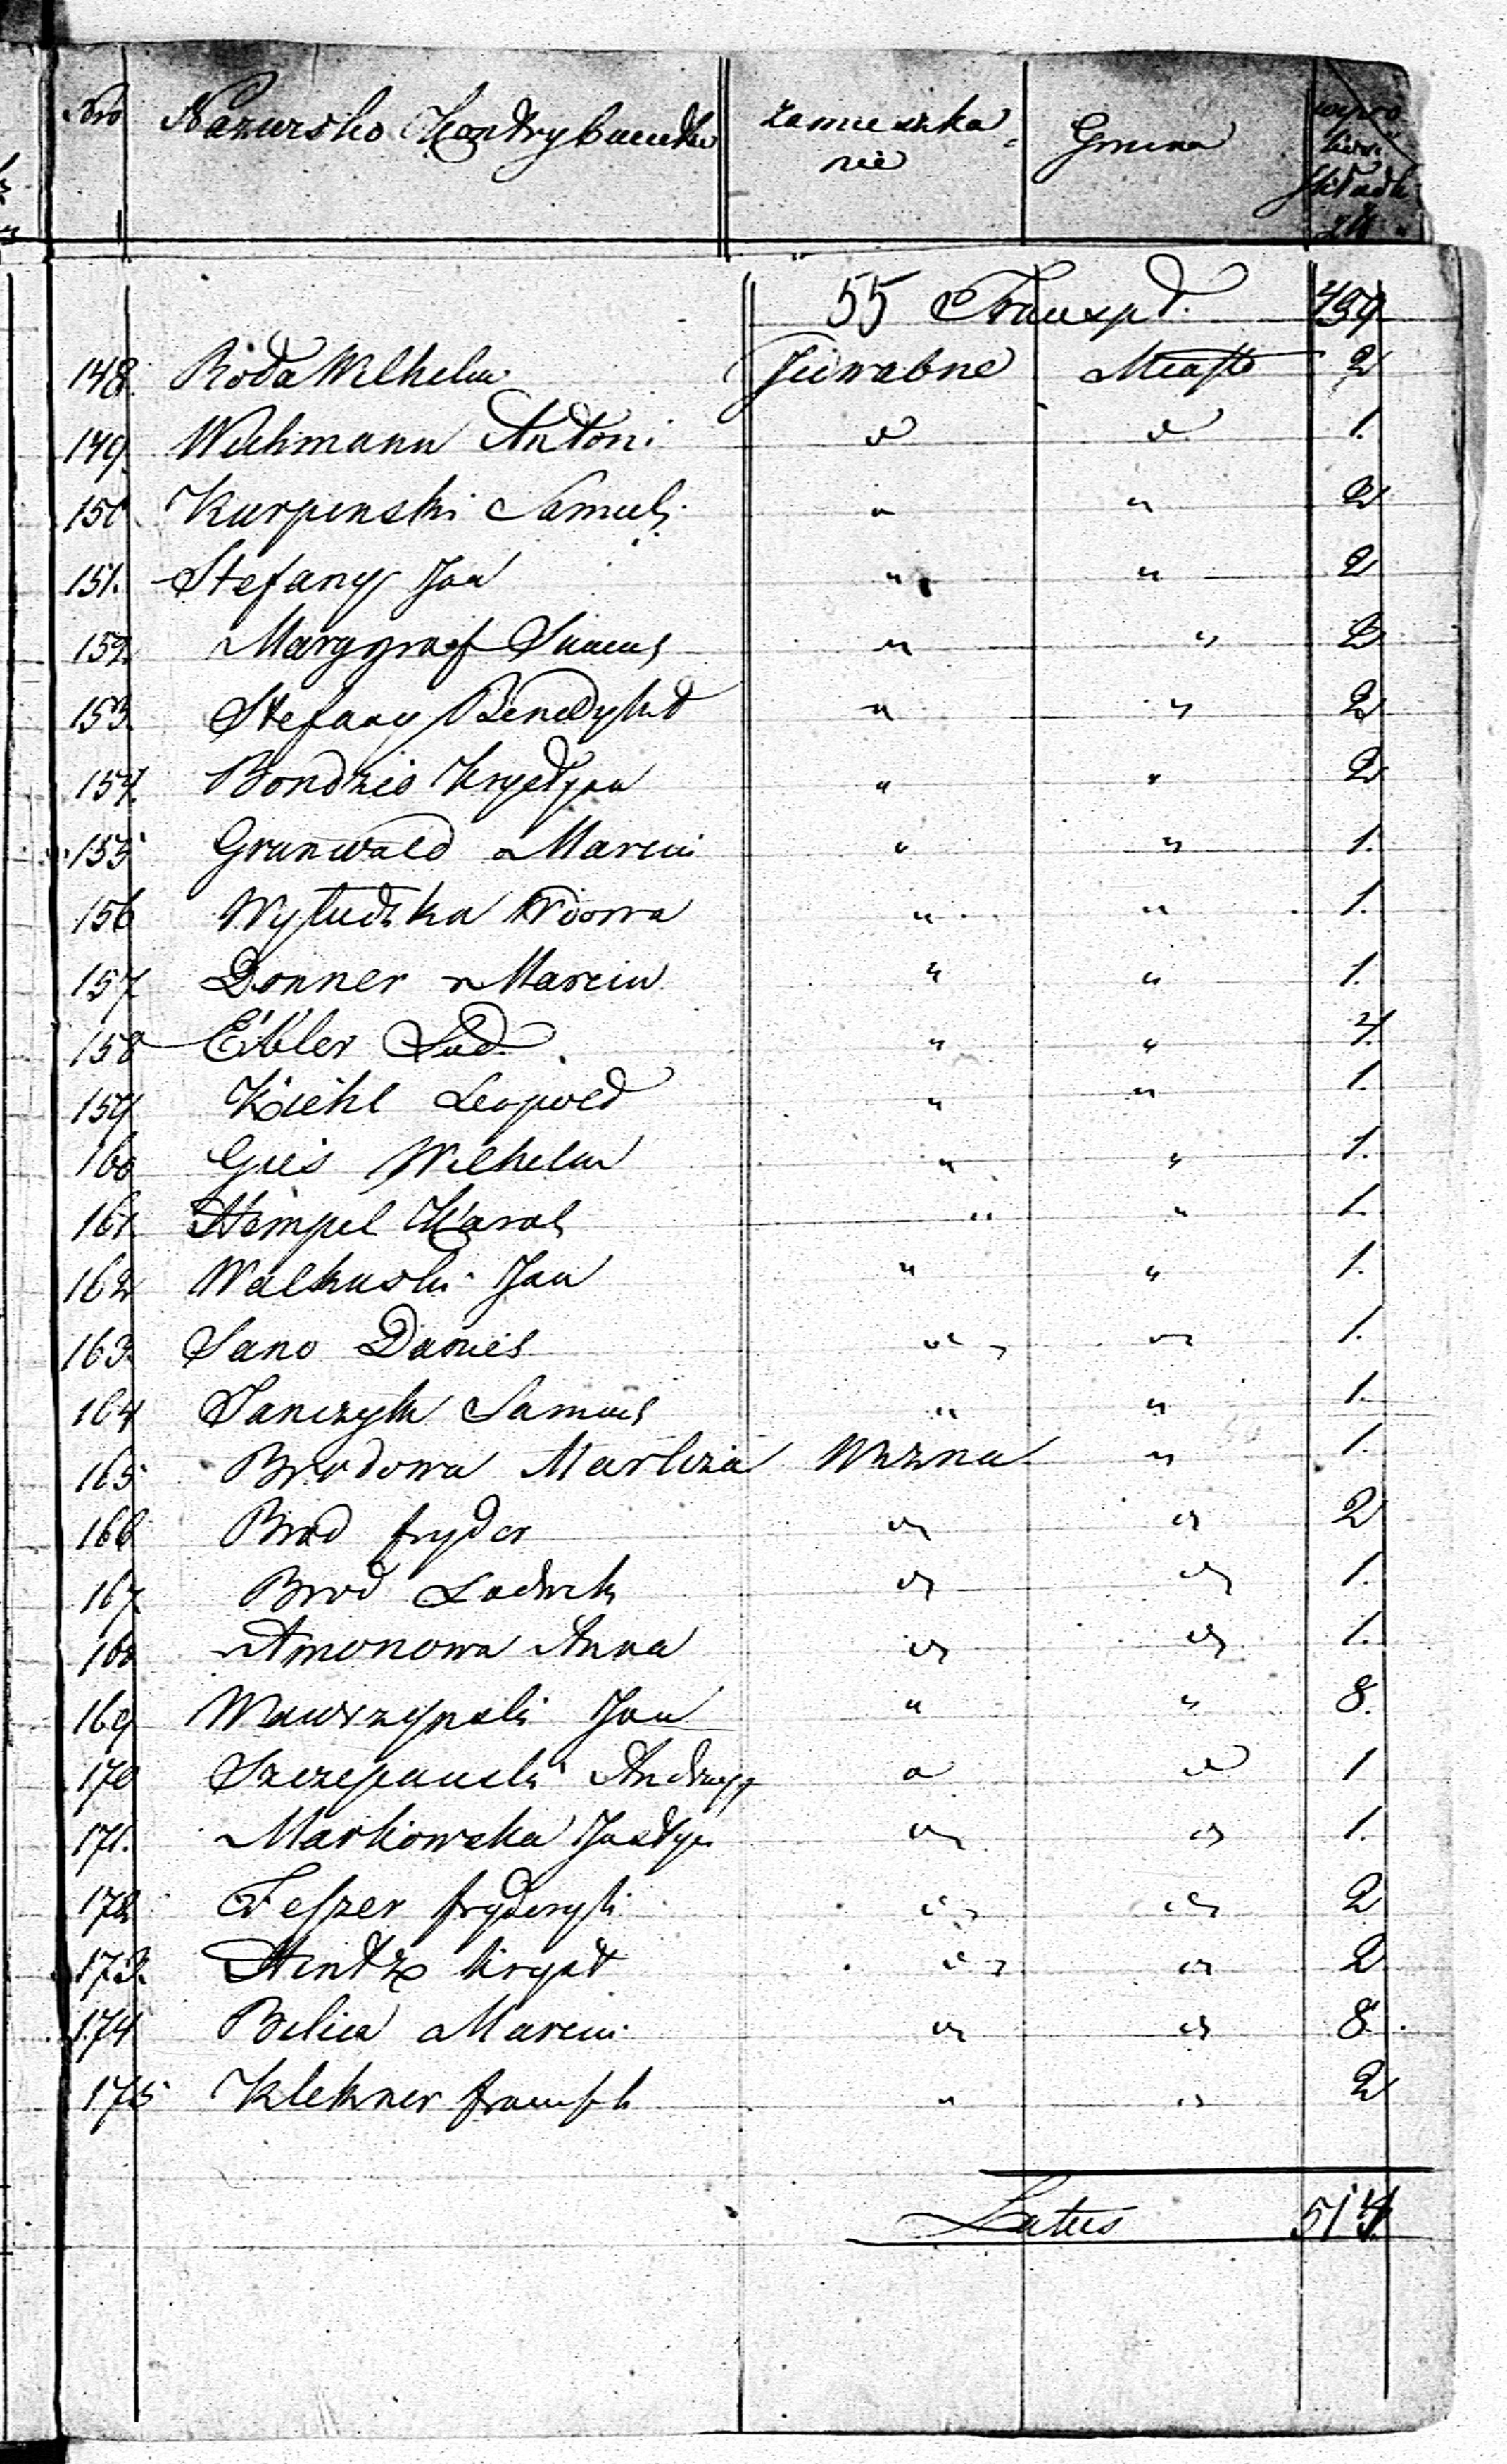 Nro Nazwisko Kontrybuenta zamieszka= nie Gmina wyso kość składk zł
55 Transpt. 459
148. Roda Wilhelm Jedwabne Miasto 2
149. Wichmann Antoni d d 1.
150 Kurpinski Samuel " " 2
151. Stefany Jan " " 2
152. Marggraf Samuel " " 2
153. Stefany Benedykt " " 2
154. Bondzio Krystyan " " 2
155 Grunwald Marcin " " 1.
156 Wyludzka Wdowa " " 1.
157 Donner Marcin " " 1.
158 Eibler Lud. " " 4.
159 Kiehl Leopold " " 1.
160 Gies Wilhelm " " 1.
161. Hempel Karol " " 1.
162 Walkuski Jan " " 1.
163. Sano Daniel " " 1.
164 Janczyk Samuel " " 1.
165 Brodowa Marliza Wizna " 1.
166 Brod fryder " " 2
167. Brod Ludwik " " 1.
168 Amonowa Anna " " 1.
169 Wawrzynski Jan " " 8.
170 Szczepanski Andrzej " d 1
171. Markowska Justyn " " 1.
172 Feszer fryderyk " " 2
173. Hintz kryst " " 2
174 Belica Marcin " " 8.
175 Klekner " " 2
Latus 514.